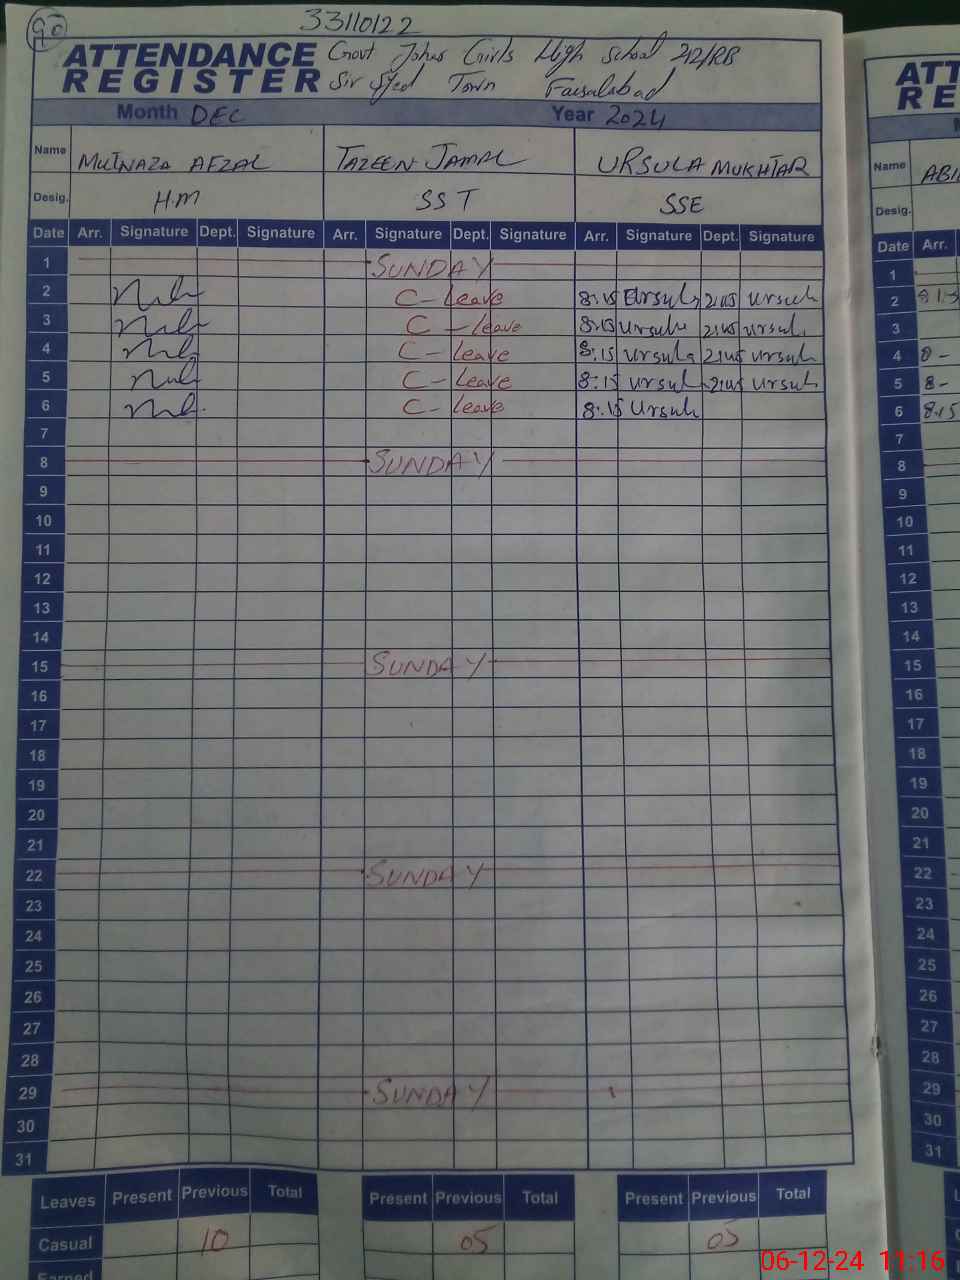 90
33110122
ATTENDANCE REGISTER
Govt Johar Girls High School 212/RB
Sir Syed Town Faisalabad
Month DEC Year 2024
Name MUTNAZA AFZAL TAZEEN JAMAL URSULA MUKHTAR
Desig. H.M SST SSE
Date Arr. Signature Dept. Signature Arr. Signature Dept. Signature Arr. Signature Dept. Signature
1 SUNDAY
2 C-Leave 8:15 Ursula 2:45 Ursula
3 C-Leave 8:15 Ursula 2:45 Ursula
4 C-Leave 8:15 Ursula 2:45 Ursula
5 C-Leave 8:15 Ursula 2:45 Ursula
6 C-Leave 8:15 Ursula
7
8 SUNDAY
9
10
11
12
13
14
15 SUNDAY
16
17
18
19
20
21
22 SUNDAY
23
24
25
26
27
28
29 SUNDAY
30
31
Leaves Present Previous Total Present Previous Total Present Previous Total
Casual 10 05 05
Earned
ATT
RE
Name ABI
Desig.
Date Arr.
1
2
3
4 8-
5 8-
6 8.15
7
8
9
10
11
12
13
14
15
16
17
18
19
20
21
22
23
24
25
26
27
28
29
30
31
06-12-24 11:16